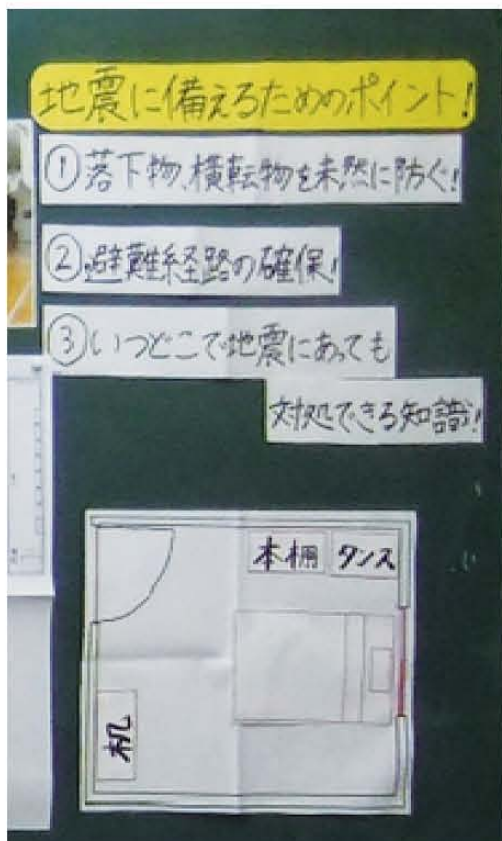 地震に備えるためのポイント!
①落下物、横転物を未然に防ぐ!
②避難経路の確保!
③いつどこで地震にあっても
対処できる知識!
本棚 タンス
机